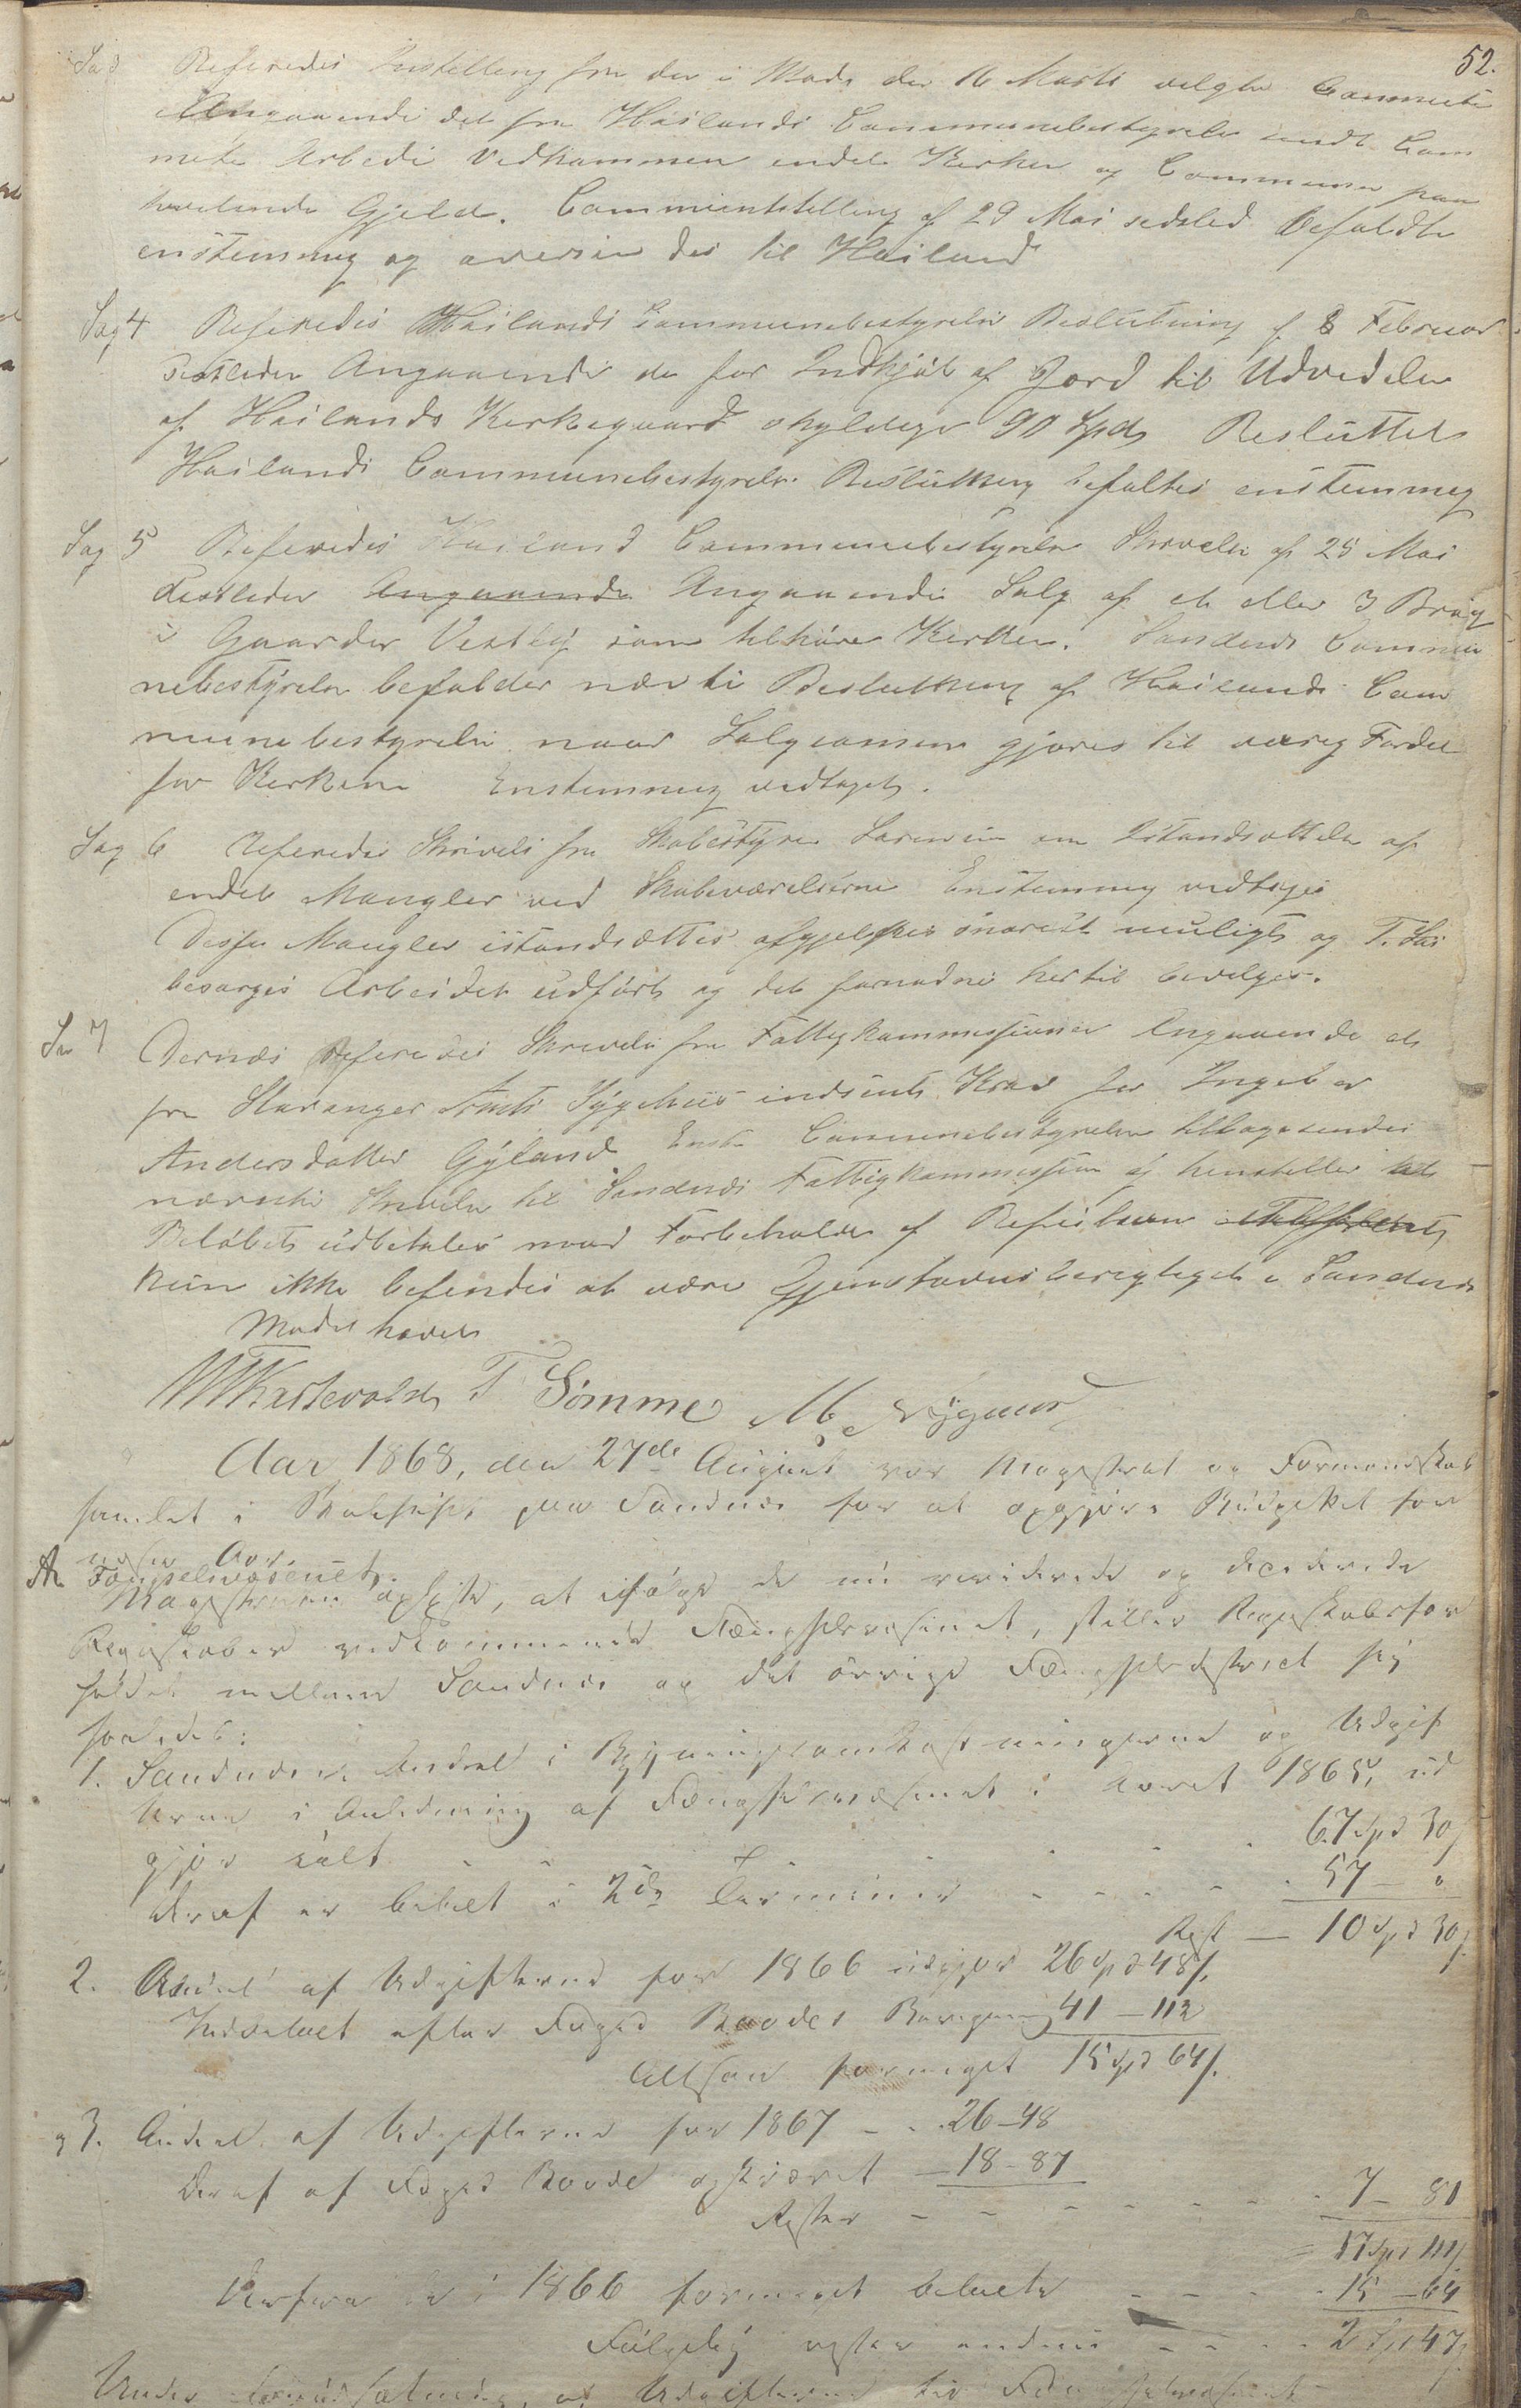 52.
Sag 3 Refereredes Indstilling fra den i Møde den 16 Marts valgte Committe
Angaaende det fra Høilands Communebestyrelse sendt Com
mite Arbeide Vedkommen endel Kirker og Communer paa
hvilende Gjeld. Commiindstilling af 29 Mai sidsled befaldte
enstemmig og aversendes til Høiland
Sag 4 Referedes Høilands Communebestyrelse Beslutning af 8 Februar
sistleden Angaaende de for Indkjøb af Jord til Udvidelse
af Høilands Kirkegaard skyldige 90 Spd. Besluttet
Høilands Communebestyrelse Beslutning befaltes enstemmig
Sag 5 Referedes Høiland Communebestyrelse Skrivelse af 25 Mai
sistleden Angaaende Angaaende Salg af et eller 3 Brug
i Gaarden Vestly som tilhøre Kirken. Sandnes Commu
nebestyrelse befalder nævnte Beslutning af Høilands Com
munebestyrelse naar Salgssummen gjøres til varig Fordel
for Kirkerne Enstemmig vedtaget.
Sag 6 Referedes Skrivelse fra Skolebestyrer om Istandsættelse af
endel Mangler ved Skoleværelserne Enstemmig vedtages
Disse Mangler istandsættes afhjelpes snarest muligt og T.
besørges Arbeidet udført og det fornødne hertil bevilges.
Sag 7 Dernæs Referedes Skrivelse fra Fattigkommissionen Angaaende et
fra Stavanger Amts Sygehus indsendt Krav for Ingeborg
Andersdatter Gyland Communebestyrelsen tilbagesender
nævnte Skrivelse til Sandnes Fattigkommission og henstiller at
Beløbet udbetales mod Forbeholder af Refusion
hun ikke befindes at være Hjemstavnsberettiget i Sandnes
Mødet hævet
Karlsevolds T Sømme M. Nygaard
Aar 1868, den 27de August var Magistrat og Formandskab
samlet i Skolehuset paa Sandnes for at opgjøre Budgettet for
næste Aar
A Fængselsvæsenet.
Magistraten oplyste, at ifølge de nu reviderede og deciderede
Regnskaber vedkommende Fængselsvæsenet, stiller Regnskabsfor
holdet mellem Sandnes og det øvrige Fængselsdistrict sig
saaledes:
1. Sandnes's Andel i Bygningsomkostningerne og Udgif
terne i Anledning af Fængselsvæsenet i Aaret 1865, ud
gjør ialt - - - - 67 Spd 30 ß
deraf er betalt i 2de Terminer - - - - 57 — "
Rest — 10 Spd 30 ß
2. Andel af Udgifterne for 1866 udgjør 26 Spd 48 ß.
Indbetalt efter Foged Roodes Beregning 41 — 112
Altsaa formeget 15 Spd 64 ß.
og 3. Andel af Udgifterne for 1867 - - 26 — 48
Deraf af Foged Roode opkrævet — 18 — 87
Rester - - - - - - 7 — 81
= 17 Spd 111 ß
Derfra de i 1866 formeget betalte - - - - 15 — 64
Følgelig rester endnu - - - - 2 Spd 47 ß
Under Forudsætning, at Udgifterne til Fængselsvæsenet